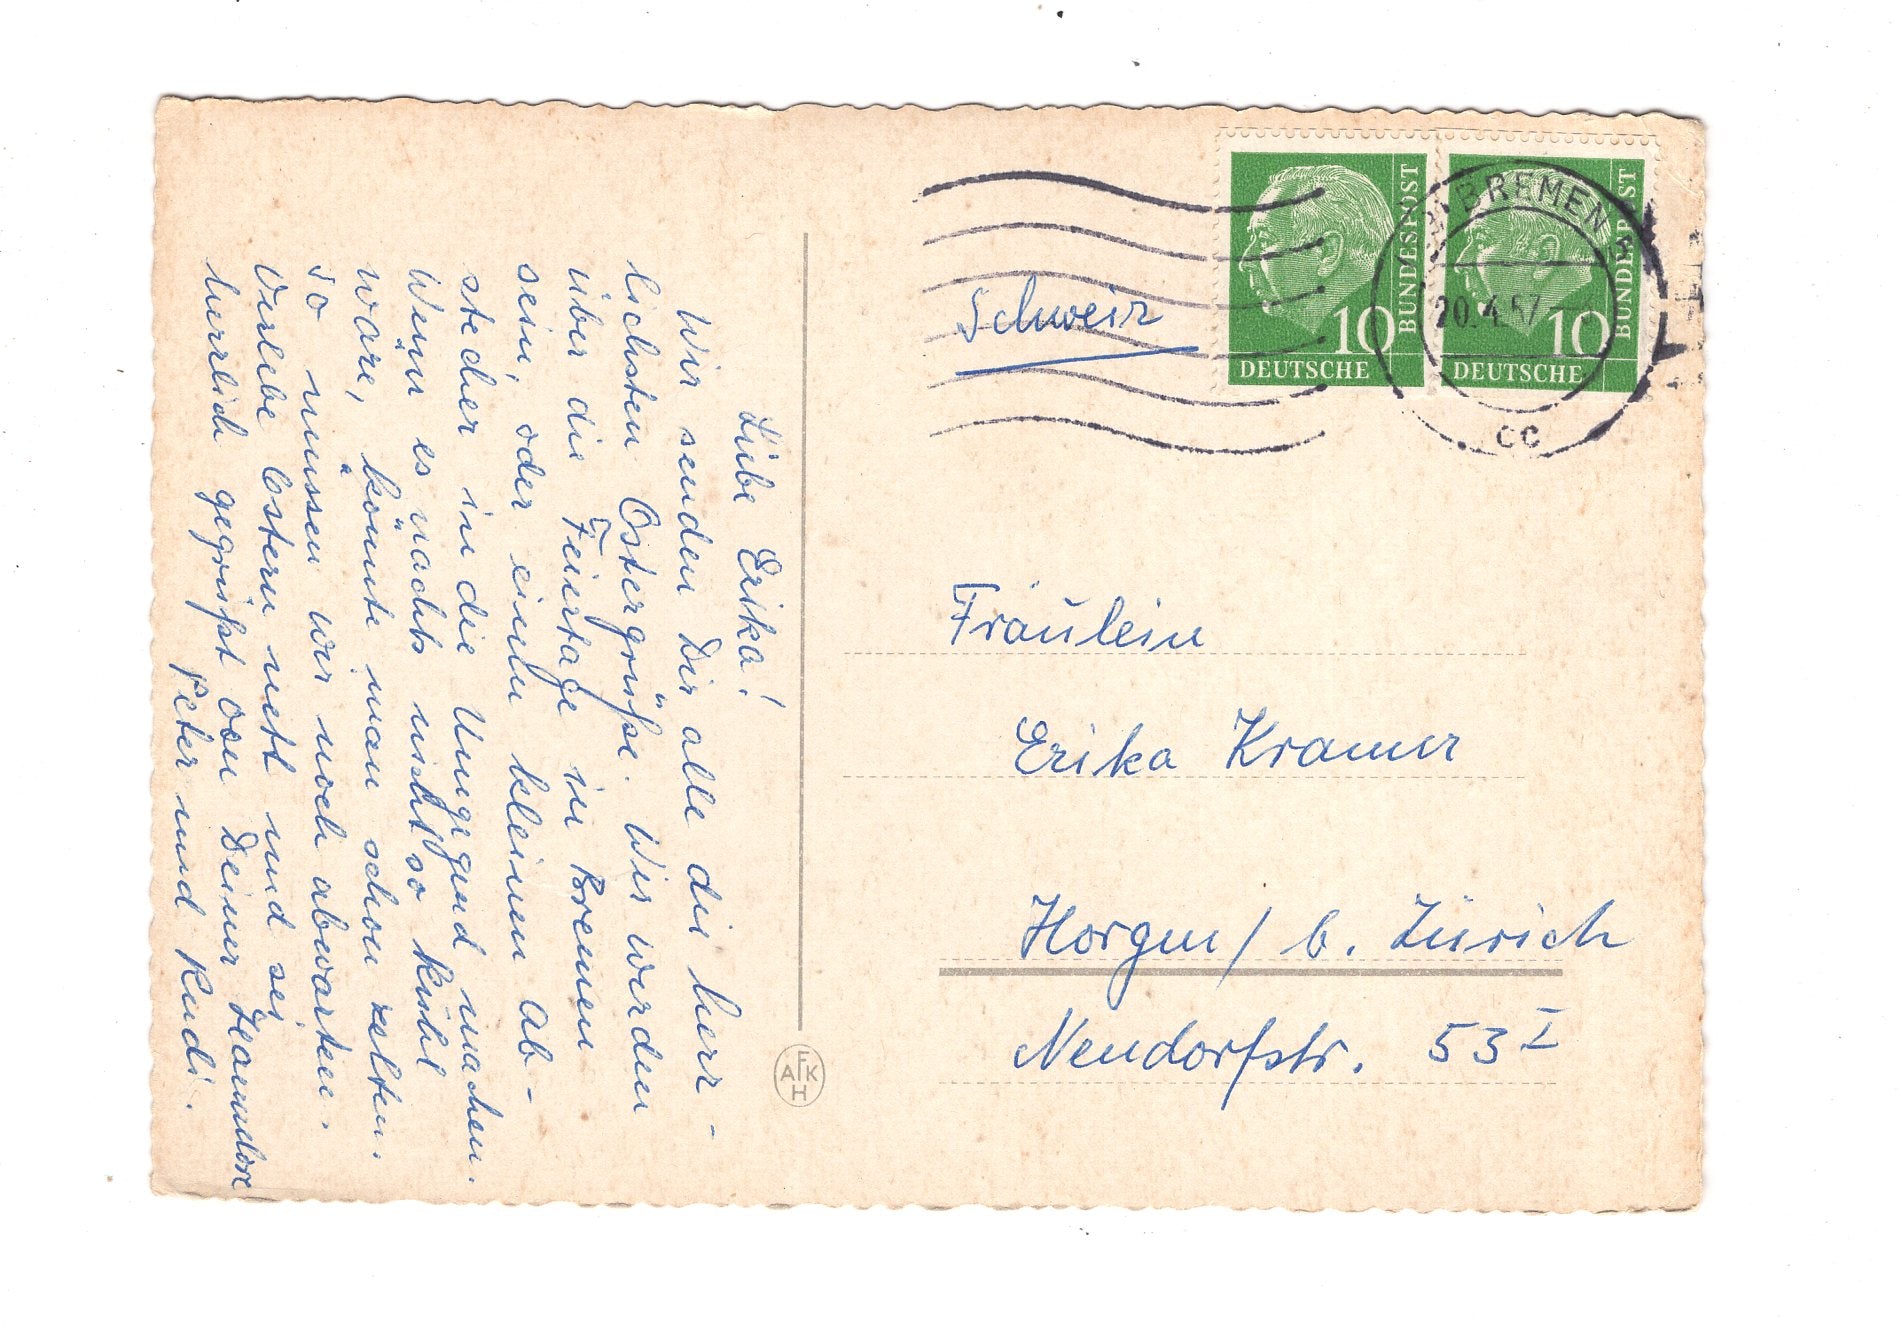 Liebe Erika!
Wir senden Dir alle die herz-
lichsten Ostergrüße. Wir werden
über die Feiertage in Bremen
sein, oder einen kleinen Ab-
stecher in die Umgegend machen.
Wenn es nachts nicht so kühl
wäre, könnte man schon zelten.
So müssen wir noch abwarten.
Verlebe Ostern nett und sei
herzlich gegrüßt von Deiner Hannelore
Peter und Rudi.
Schweiz
DEUTSCHE BUNDESPOST 10
DEUTSCHE BUNDESPOST 10
BREMEN
20.4.57
cc
Fräulein
Erika Kramer
Horgen / b. Zürich
Neudorfstr. 53 I
AFKH